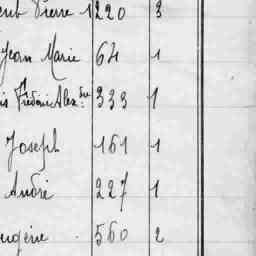 Pierre 1220 3
Jean Marie 64 1
Frédéric Alexdre 333 1
Joseph 161 1
André 227 1
560 2